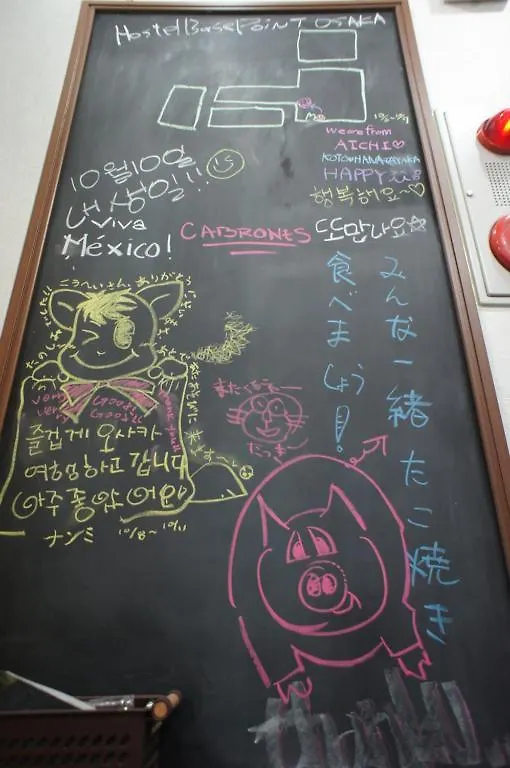 Hostel Base Point OSAKA
we are from
AICHI♡
HAPPY
행복해요~♡
10월 10일
내 생일!!
Viva
México!
CABRONES
또 만나요☆
みんな一緒たこ焼き
食べましょう!
こうへいさん、ありがとう
very Good!!
very Good!!
즐겁게 오사카
여행하고 갑니다
아주 좋았어요
ナンミ 10/8~10/11
またくるぞー